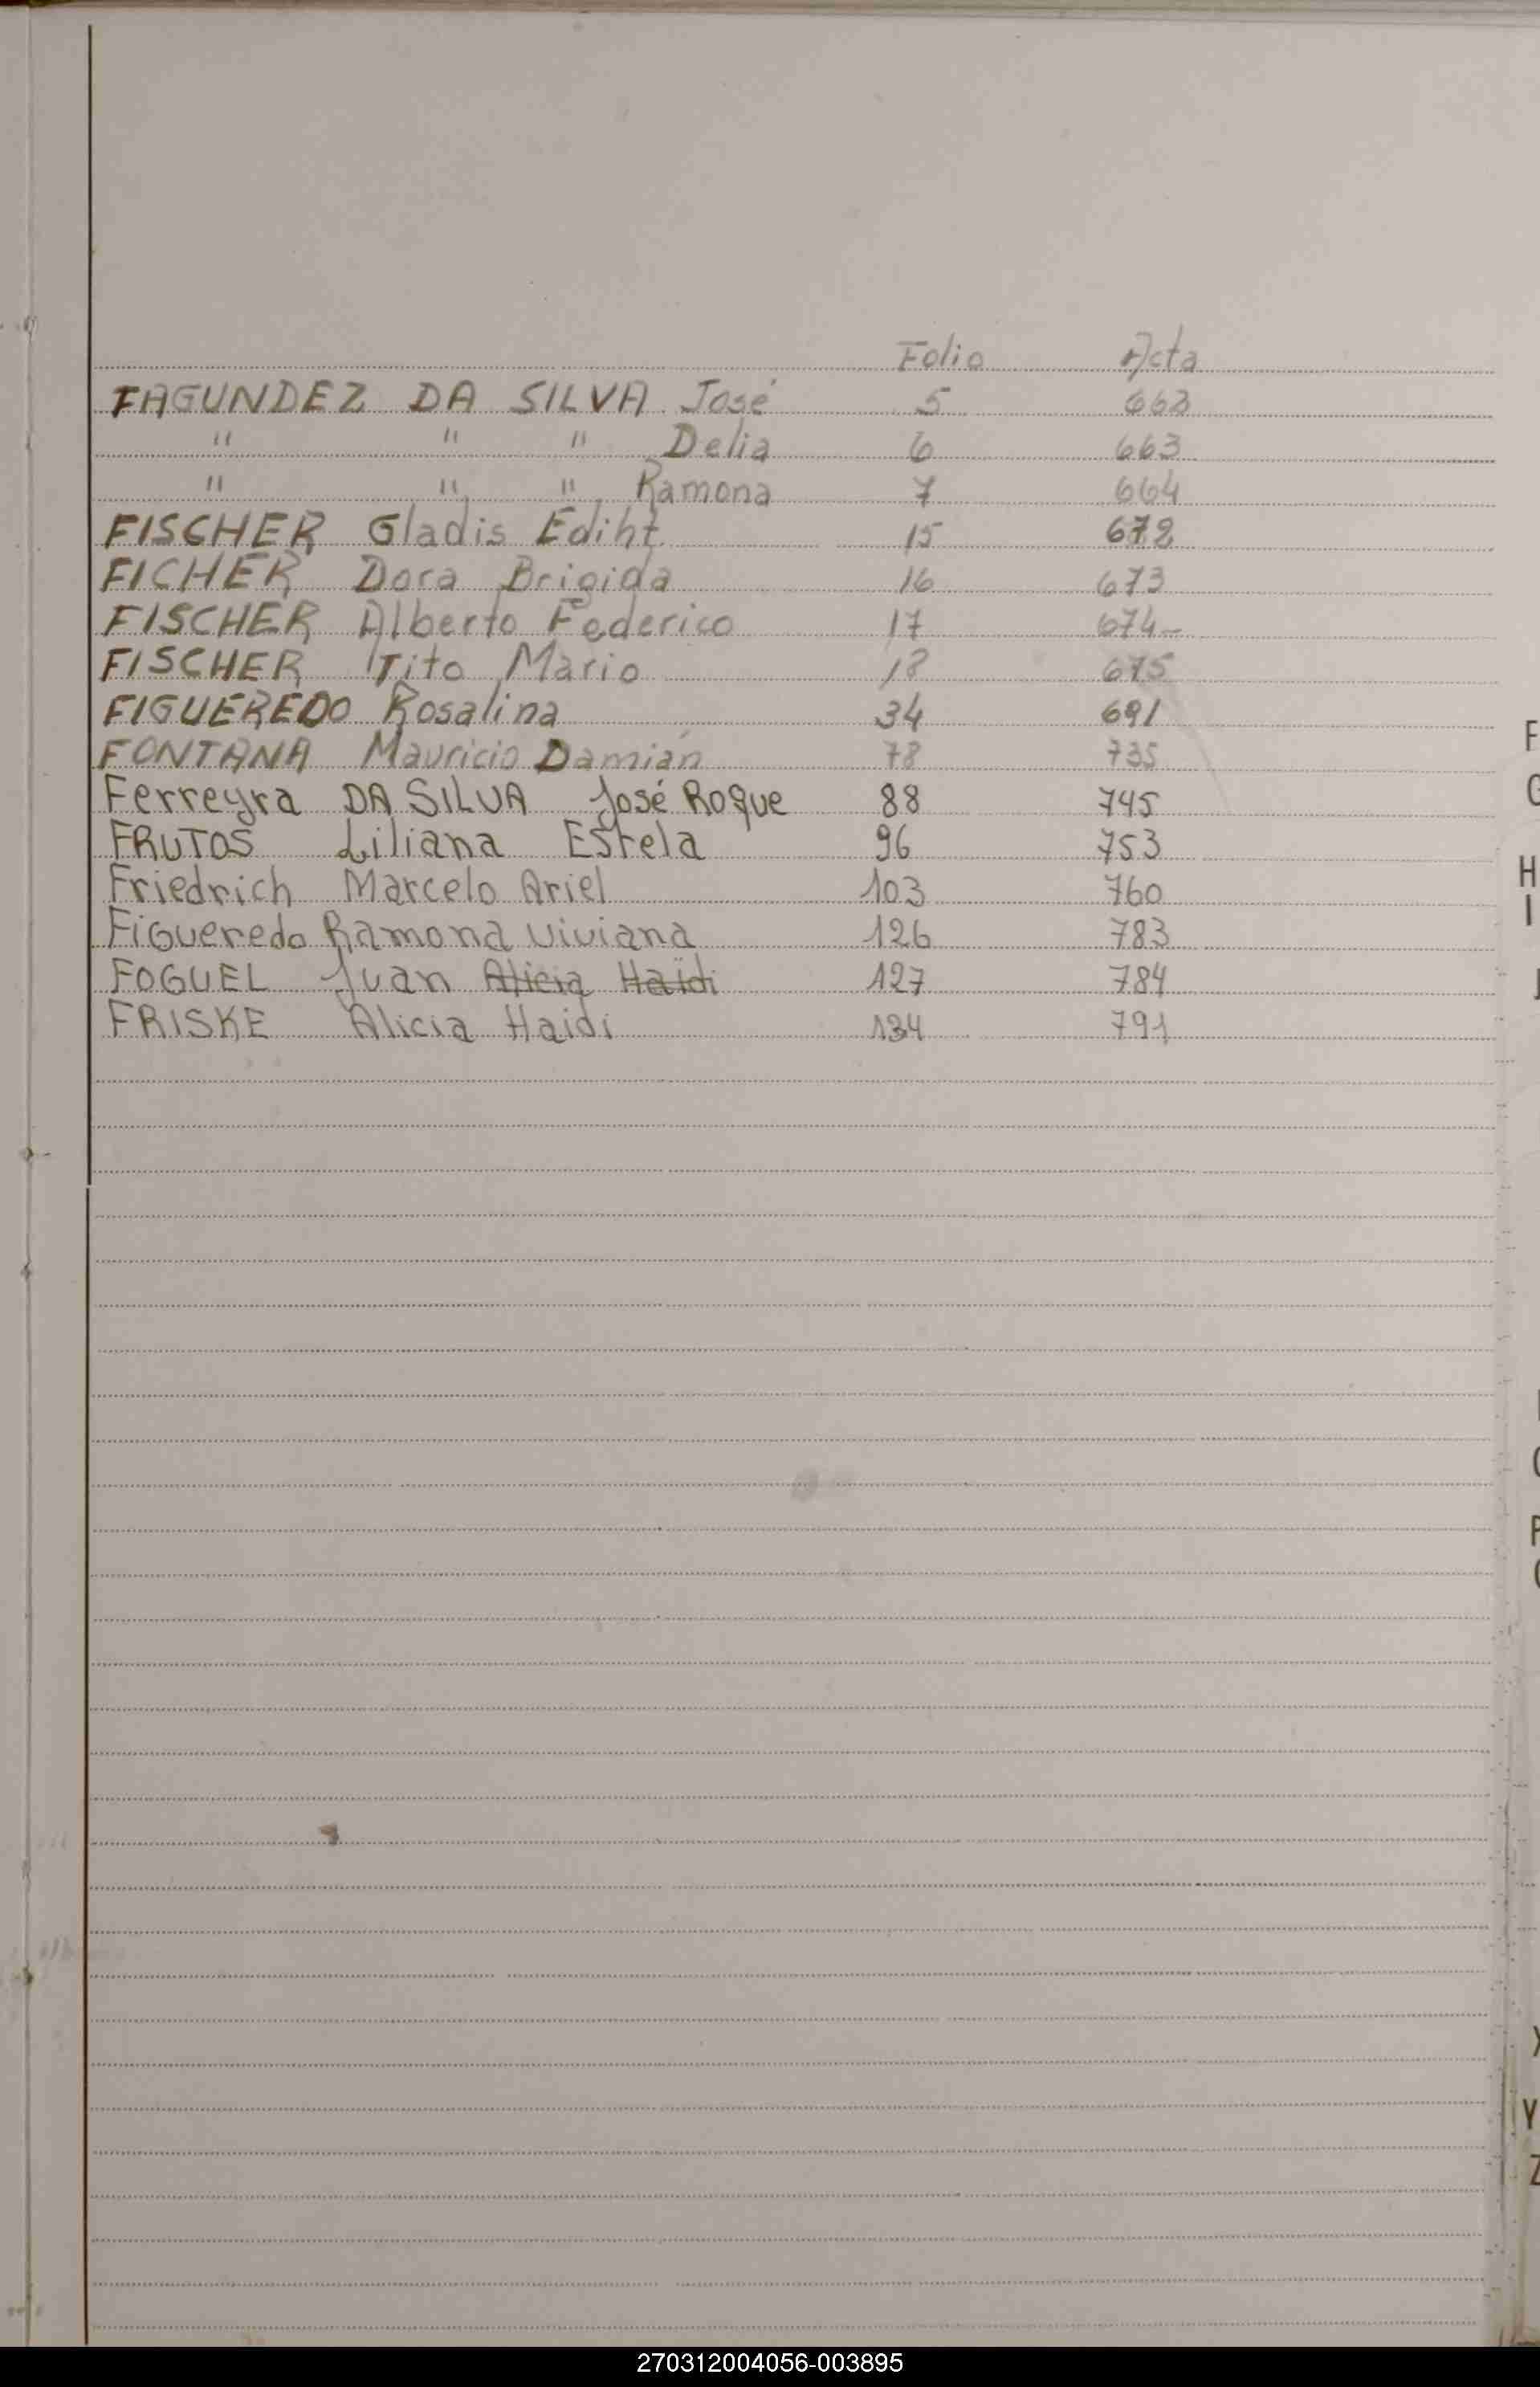 Folio Acta
FAGUNDEZ DA SILVA José 5 662
" " " Delia 6 663
" " " Ramona 7 664
FISCHER Gladis Ediht 15 672
FICHER Dora Brigida 16 673
FISCHER Alberto Federico 17 674-
FISCHER Tito Mario 18 675
FIGUEREDO Rosalina 34 691
FONTANA Mauricio Damián 78 735
Ferreyra DA SILVA José Roque 88 745
FRUTOS Liliana Estela 96 753
Friedrich Marcelo Ariel 103 760
Figueredo Ramona Viviana 126 783
FOGUEL Juan Alicia Haidi 127 784
FRISKE Alicia Haidi 134 791
F
G
H
I
J
P
Y
Z
270312004056-003895